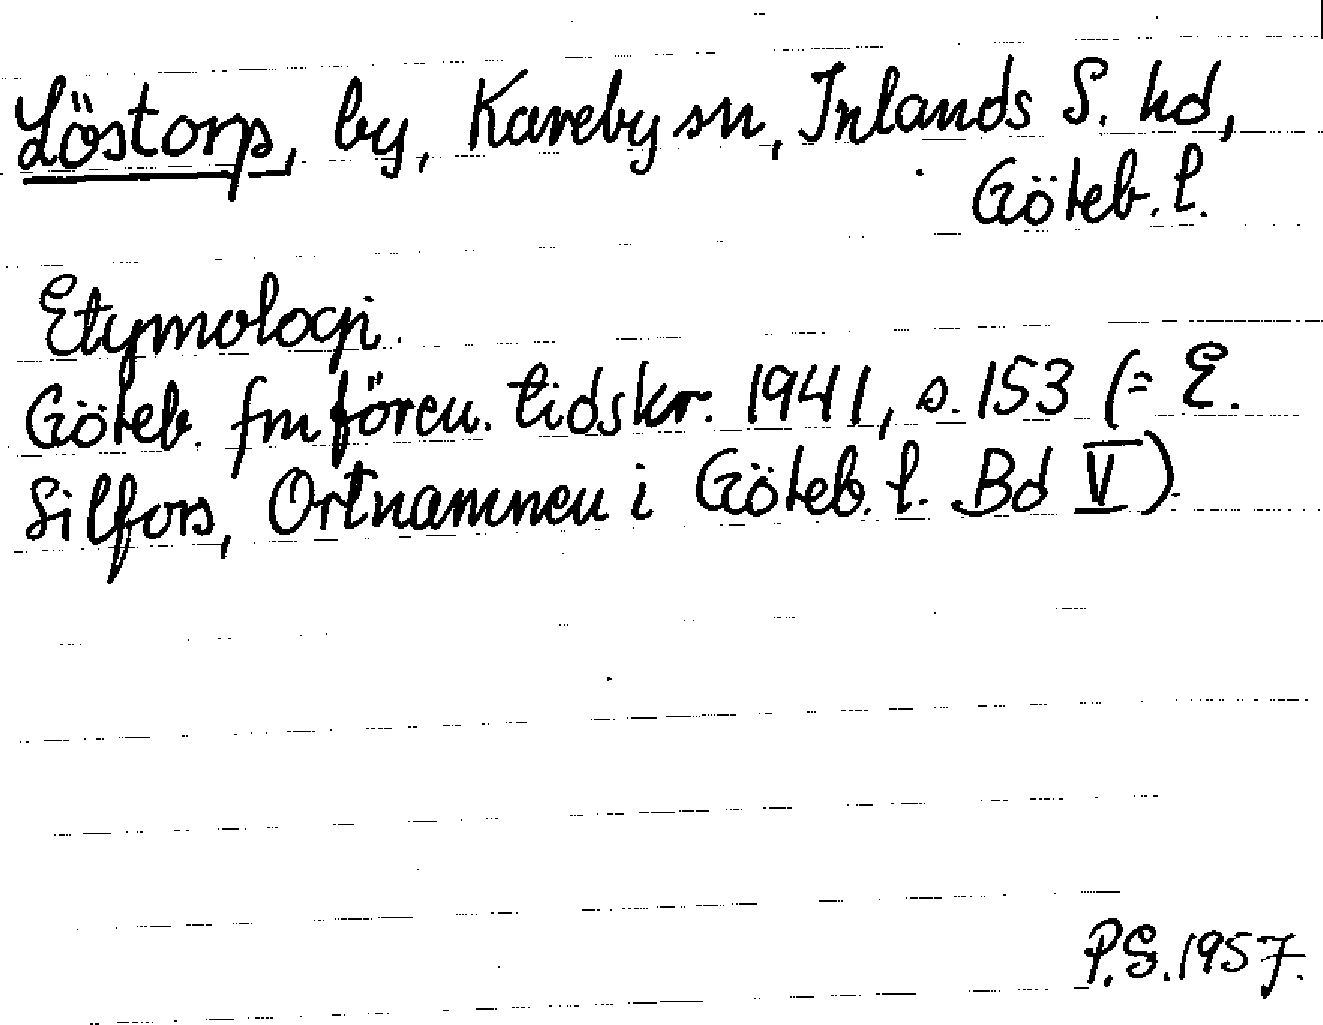 Löstorp, by, Kareby sn, Inlands S. hd,
Göteb. l.
Etymologi.
Göteb. fmfören. tidskr. 1941, s. 153 (= E.
Silfors, Ortnamnen i Göteb. l. Bd V).
P.S. 1957.